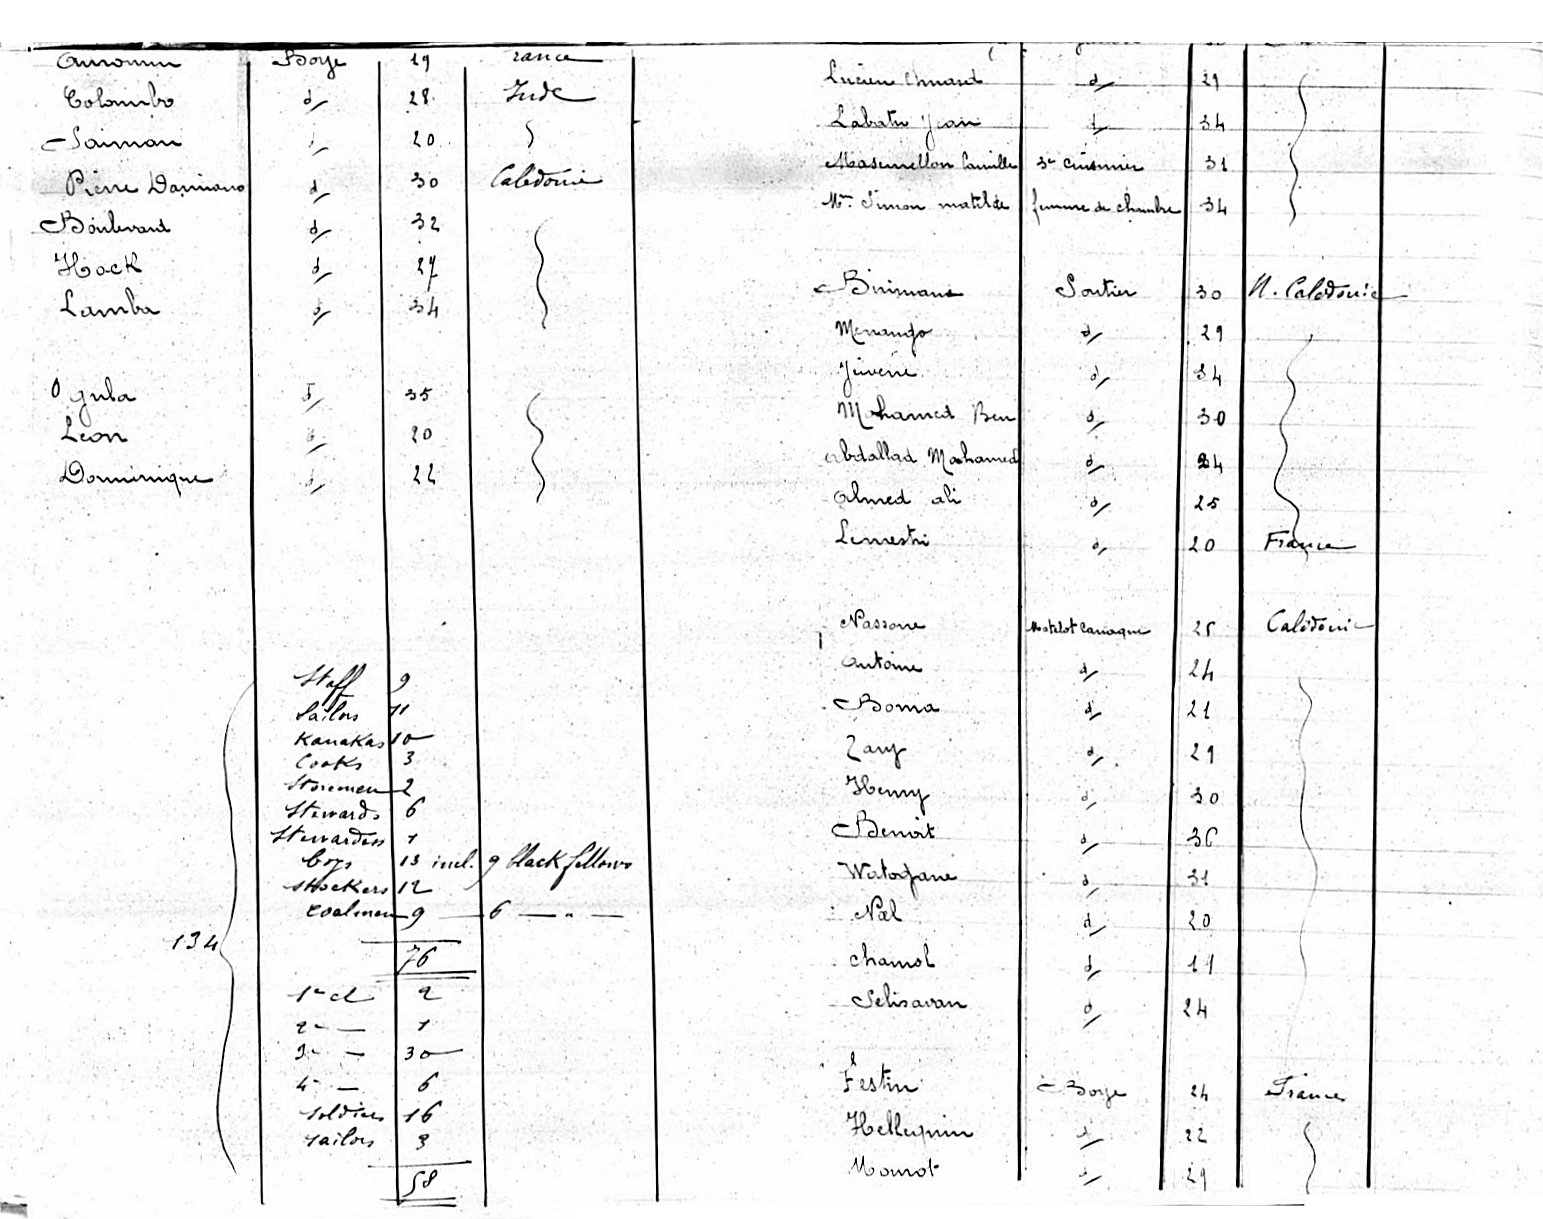 Boye 19 France
Colombo d/ 28 Inde
Saiman d/ 20
Pierre Damiano d/ 30 Calédonie
Boulevard d/ 32
Hock d/ 27
Lamba d/ 34
Ogula d/ 35
Léon d/ 20
Dominique d/ 22
Staff 9
Sailors 11
Kanakas 10
Cooks 3
Storemen 2
Stewards 6
Stewardess 1
boys 13 incl. 9 black fellows
Stockers 12
coalmen 9 — 6 — " —
134
76
1re cl 2
2e — 1
3e — 30
4e — 6
Soldiers 16
sailors 3
58
Lucien d/ 29
Labatu Jean d/ 34
Camille 3e cuisinier 31
Mme Simon matilde femme de chambre 34
Soutier 30 N. Calédonie
Menango d/ 29
d/ 34
Mohamed Ben d/ 30
Abdallad Mohamed d/ 24
Ahmed ali d/ 25
Lemestri d/ 20 France
Nassone Matelot Canaque 25 Calédonie
Antoine d/ 24
Boma d/ 21
Zany d/ 29
Henry d/ 30
Benoit d/ 36
Watogane d/ 31
Nœl d/ 20
Chamol d/ 19
Selisavan d/ 24
Festin Boye 24 France
Hellequin d/ 22
Momot d/ 29